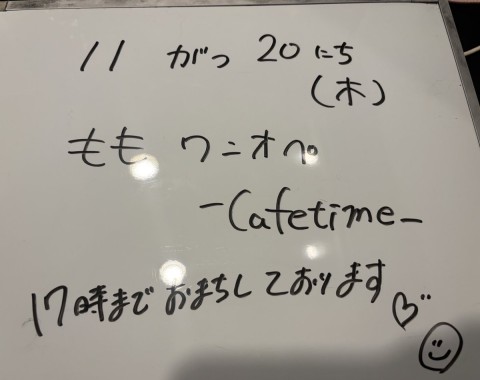 11 がつ 20 にち
(木)
もも ワニオペ
-Cafetime-
17時まで おまちしております♡